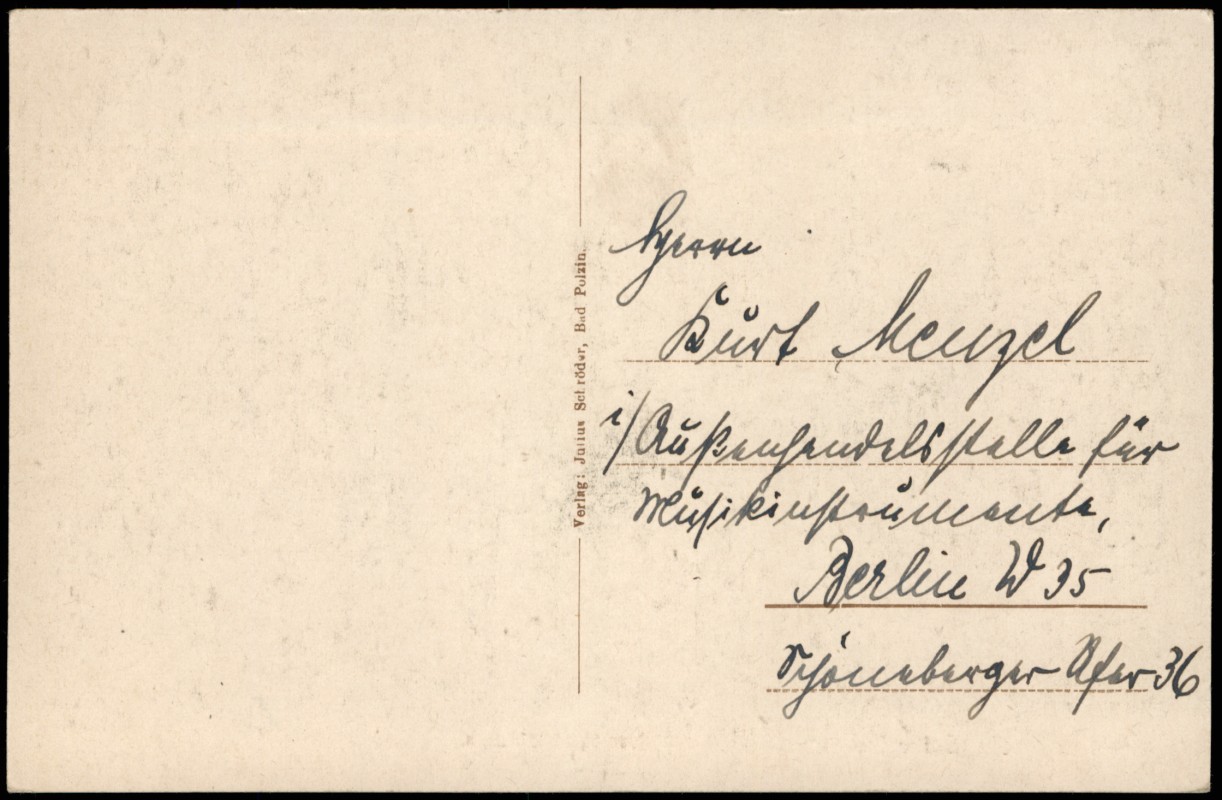 Verlag: Julius Schröder, Bad Polzin.
Herrn
Kurt Menzel
i/Außenhandelsstelle für
Musikinstrumente,
Berlin W 35
Schöneberger Ufer 36